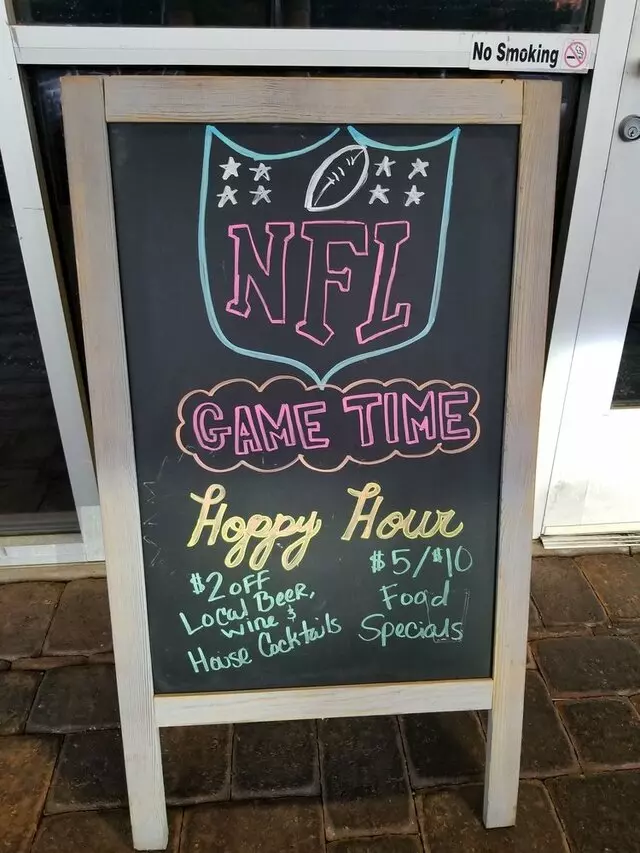 No Smoking
NFL
GAME TIME
Hoppy Hour
$2 OFF
Local Beer,
Wine &
House Cocktails
$5/$10
Food
Specials